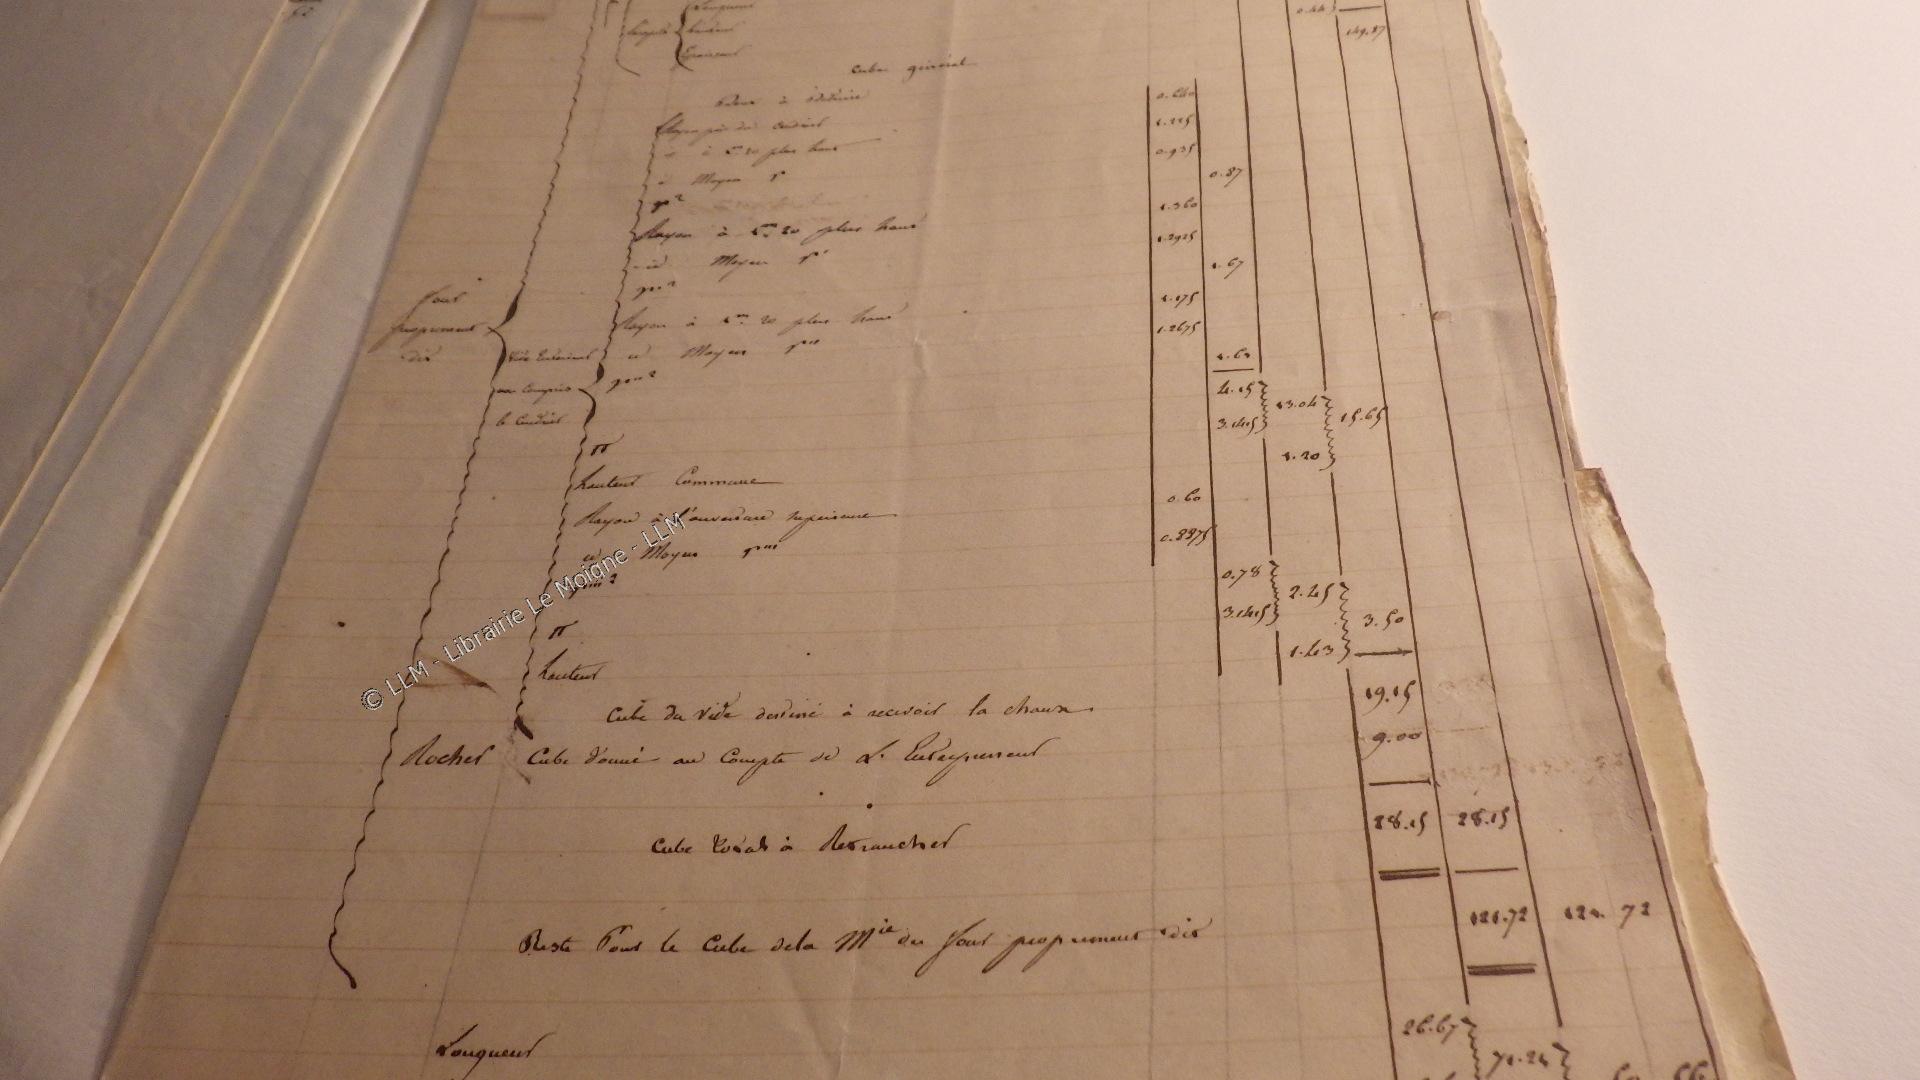 Longueur
0.44
hauteur
149.87
Epaisseur
Cube général
à déduire
0.640
Rayon du Cendrier
1.225
à 1m 20 plus haut
0.935
Moyen r
0.87
r²
1.360
Rayon à 1m 20 plus haut
1.2925
id Moyen r'
1.67
r'²
1.175
Rayon à 1m 20 plus haut
1.2675
id Moyen r''
1.60
r''²
Four proprement dit
Vide Intérieur
non Compris
le Cendrier
4.15
13.04
15.65
3.1415
π
1.20
hauteur Commune
0.60
Rayon à l'ouverture supérieure
0.8875
id Moyen r'''
0.78
r'''²
2.45
3.1415
3.50
π
1.43
hauteur
19.15
Cube du Vide destiné à recevoir la chaux
9.00
Rocher Cube donné au Compte de L'Entrepreneur
28.15 28.15
Cube total à Retrancher
121.72 121.72
Reste Pour le Cube de la Mie du four proprement dit
26.67
Longueur
71.24
© LLM - Librairie Le Moigne - LLM